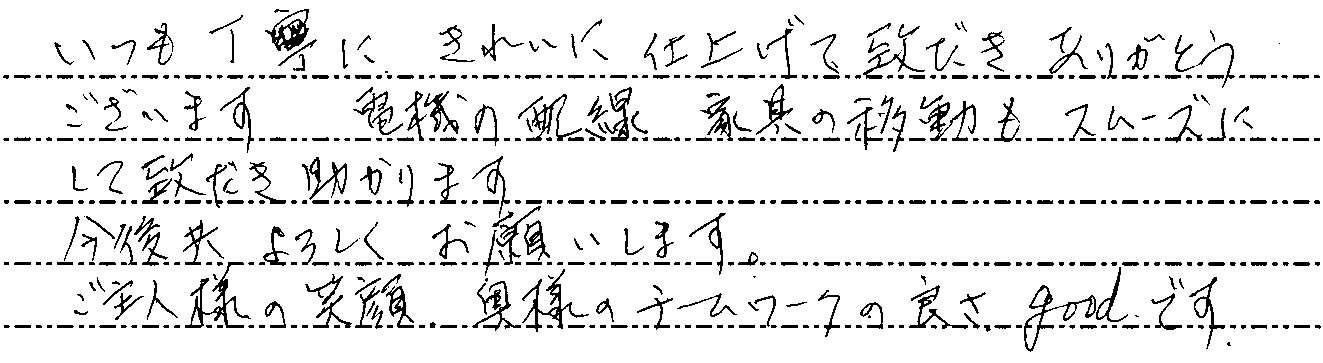 いつも丁寧に きれいに 仕上げて致だき ありがとう
ございます 電機の配線 家具の移動も スムーズに
して致だき助かります
今後共 よろしく お願いします。
ご主人様の笑顔. 奥様のチームワークの良さ. good.です.